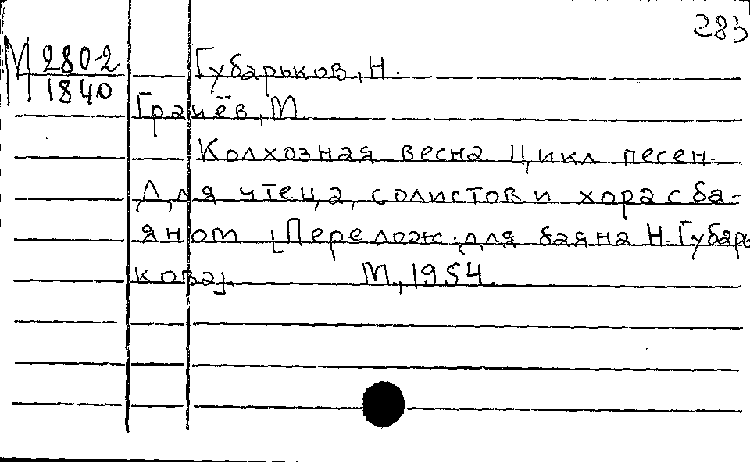 283
М 2802 Губарьков, Н.
1840
Грачёв, М
Колхозная весна Цикл песен
Для чтеца, солистов и хора с ба-
яном [Перелож. для баяна Н. Губарь
кова]. М., 1954.